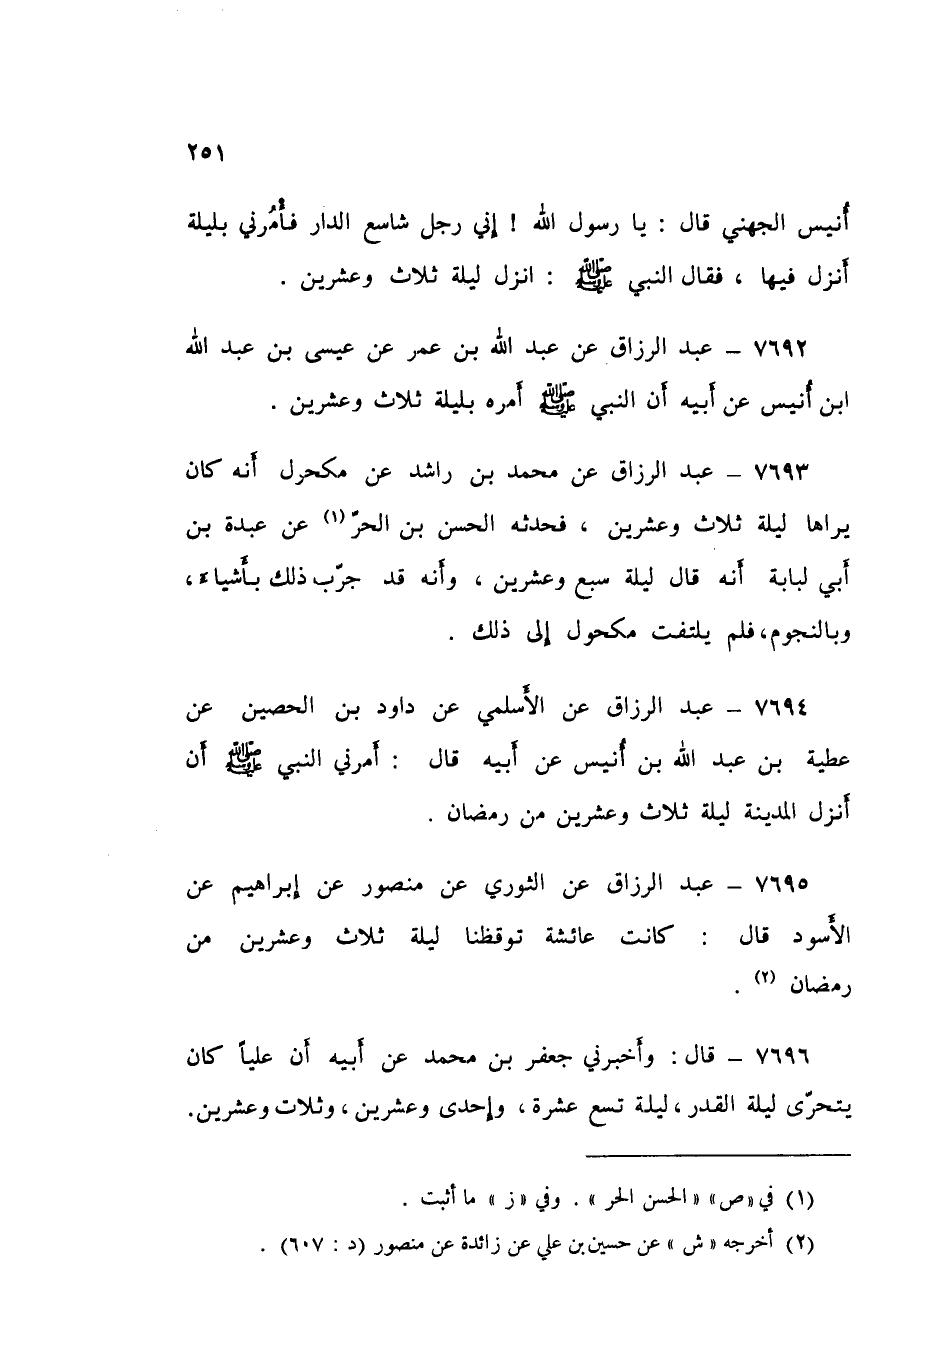 ٢٥١
أُنيس الجهني قال : يا رسول الله ! إني رجل شاسع الدار فأْمُرني بليلة
أَنزل فيها ، فقال النبي ﷺ : انزل ليلة ثلاث وعشرين .
٧٦٩٢ – عبد الرزاق عن عبد الله بن عمر عن عيسى بن عبد الله
ابن أُنيس عن أَبيه أَن النبي ﷺ أَمره بليلة ثلاث وعشرين .
٧٦٩٣ – عبد الرزاق عن محمد بن راشد عن مكحول أَنه كان
يراها ليلة ثلاث وعشرين ، فحدثه الحسن بن الحرّ (١) عن عبدة بن
أَبي لبابة أَنه قال ليلة سبع وعشرين ، وأَنه قد جرّب ذلك بأَشياء ،
وبالنجوم، فلم يلتفت مكحول إلى ذلك .
٧٦٩٤ – عبد الرزاق عن الأَسلمي عن داود بن الحصين عن
عطية بن عبد الله بن أُنيس عن أَبيه قال : أَمرني النبي ﷺ أَن
أَنزل المدينة ليلة ثلاث وعشرين من رمضان .
٧٦٩٥ – عبد الرزاق عن الثوري عن منصور عن إبراهيم عن
الأَسود قال : كانت عائشة توقظنا ليلة ثلاث وعشرين من
رمضان (٢) .
٧٦٩٦ – قال : وأَخبرني جعفر بن محمد عن أَبيه أَن علياً كان
يتحرّى ليلة القدر ، ليلة تسع عشرة ، وإحدى وعشرين ، وثلاث وعشرين .
(١) في «ص» «الحسن الحر» . وفي «ز» ما أثبت .
(٢) أخرجه «ش» عن حسين بن علي عن زائدة عن منصور (د : ٦٠٧) .